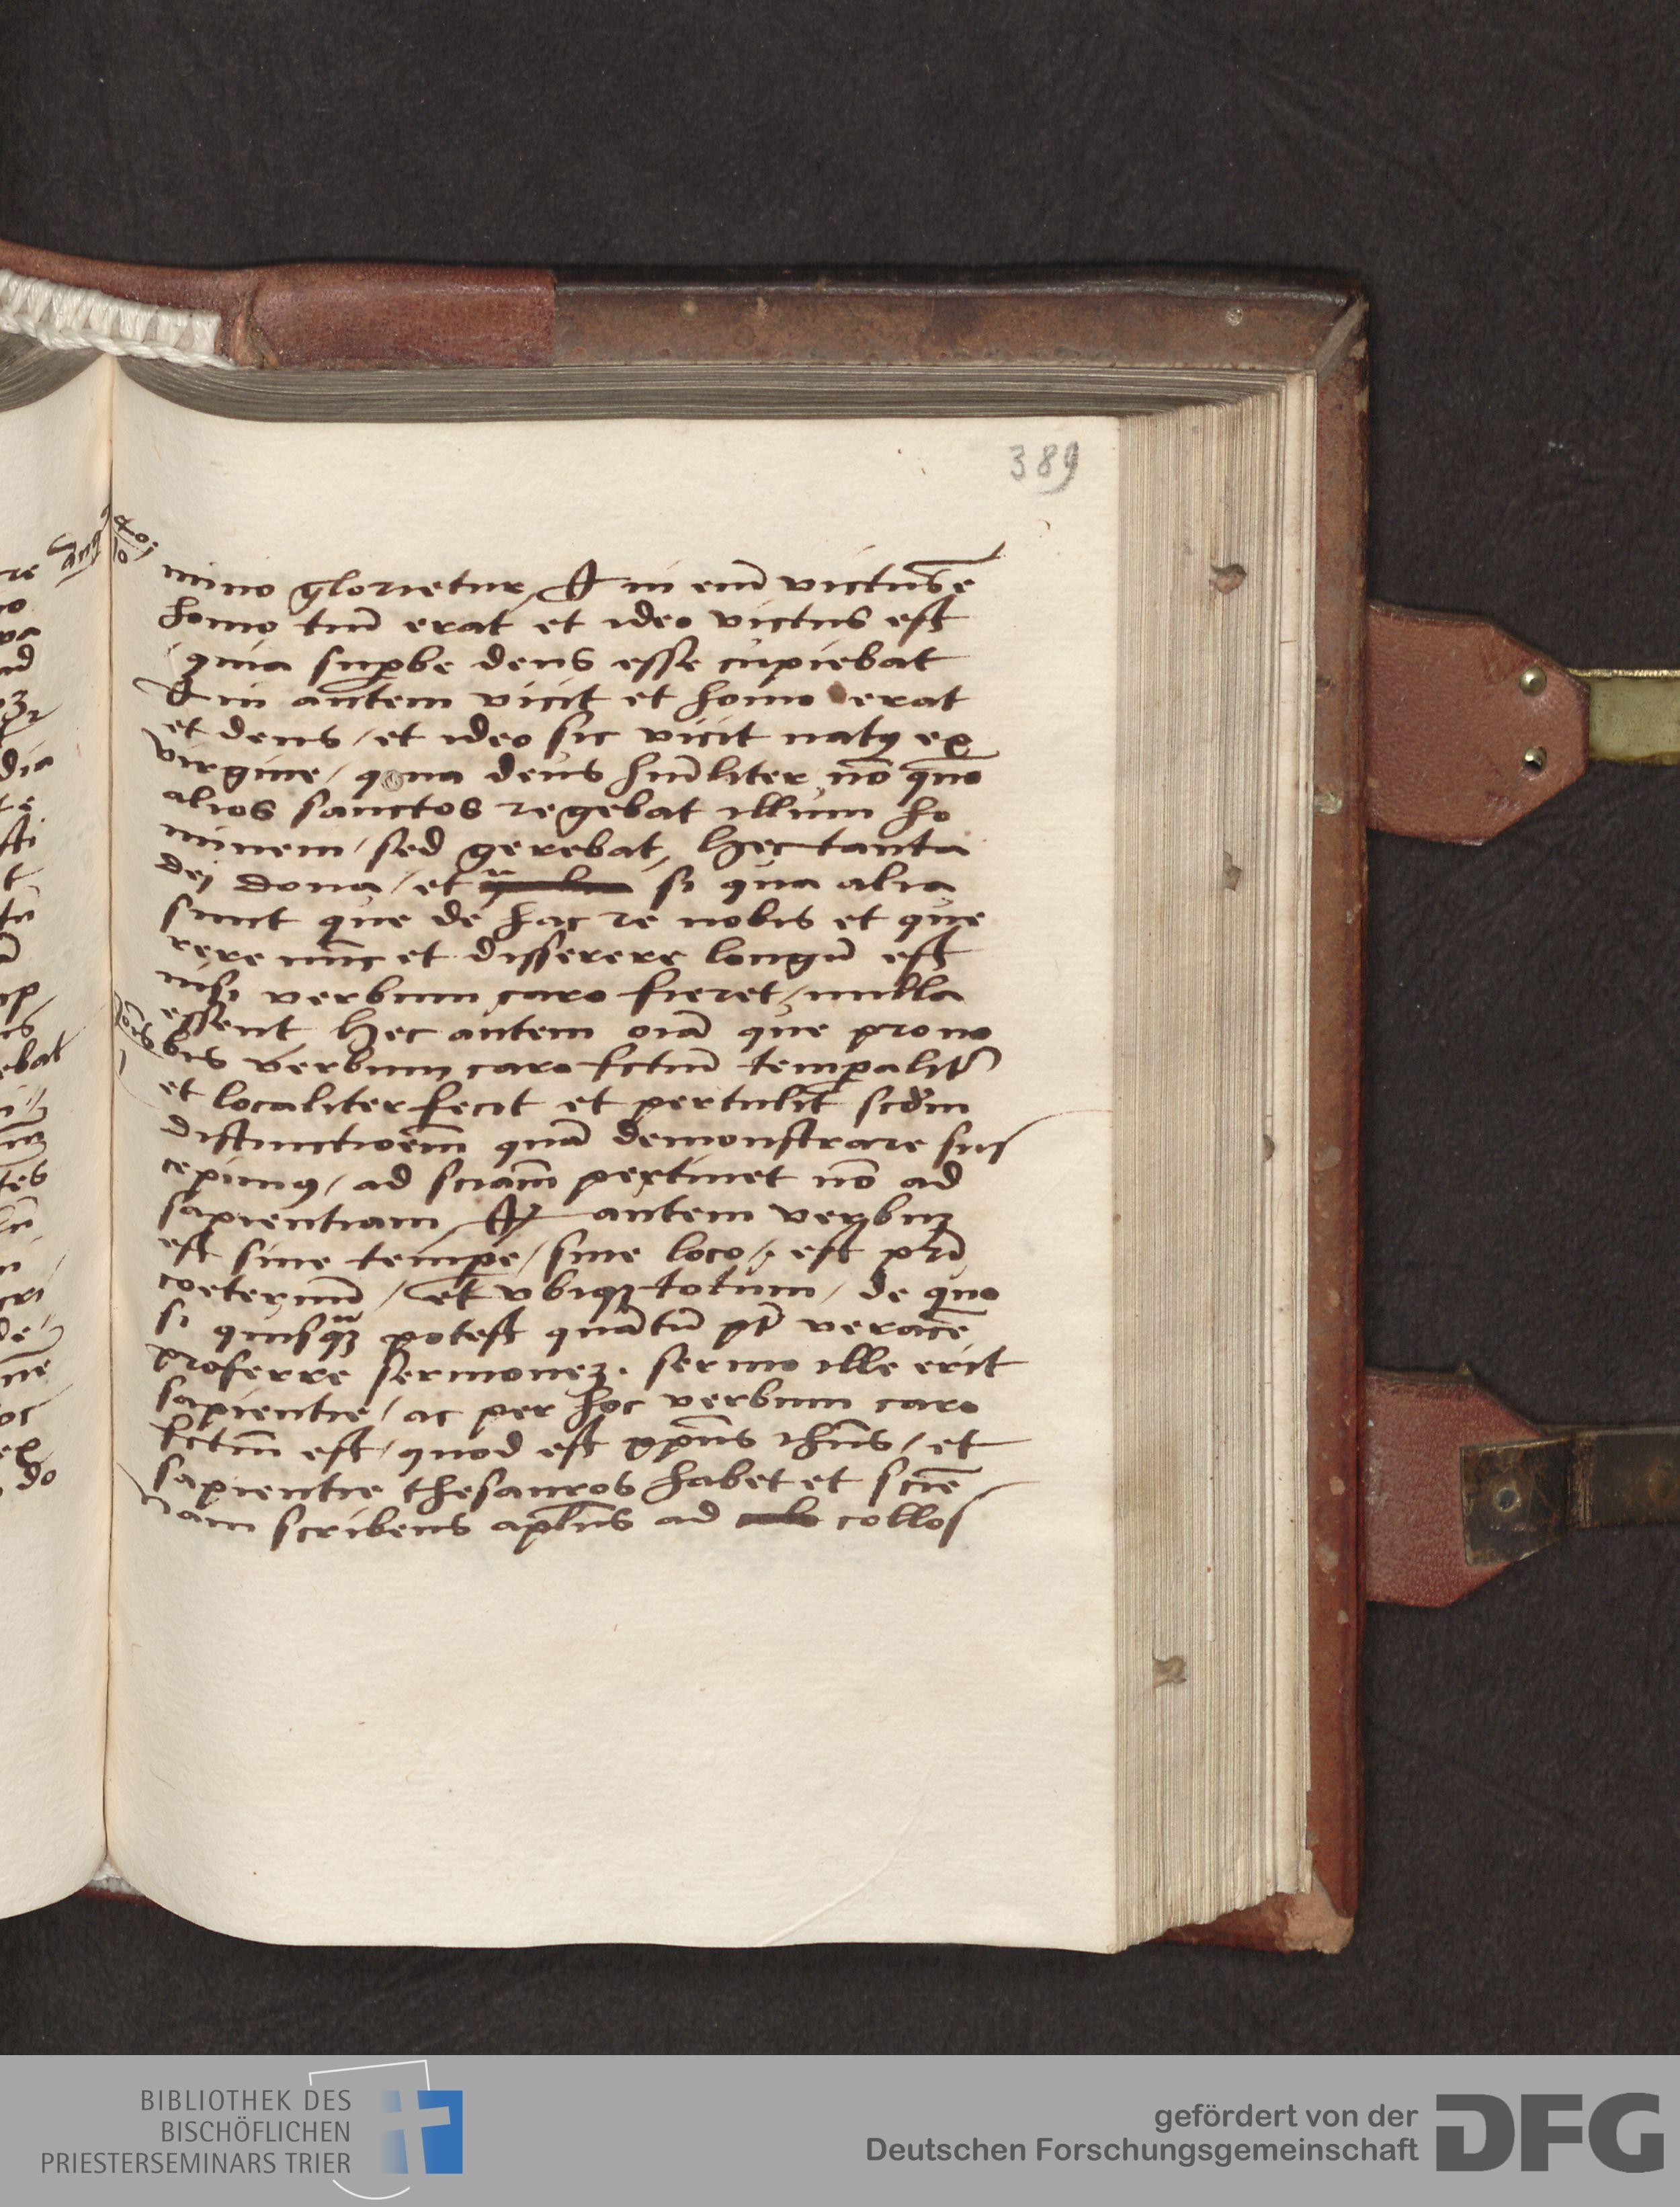 389
mino glorietur, Q in em̄ victus ē
homo tm̄ erat et ideo victus est
quia supbe deus esse cupiebat
Q in autem vicit et homo erat
et deus / et ideo sic vicit natꝰ ex
virgine / quia deus hūiliter nō quō
alios sanctos regebat illum ho
minem / sed gerebat, Hec tanta
dei dona / et si qua alia
sunt que de hac re nobis et que
rere nūc et disserere longū est
nisi verbum caro fieret / nulla
essent Hec autem oīa que pro no
bis verbum caro fctm̄ tempalit̄
et localiter fecit et pertulit scdm
distinctioēm quā demonstrare sus
cepimꝰ / ad sciam̄ pertinet nō ad
sapientiam, autem verbuꝫ
est sine tempe / sine loco / est pr̄i
coeternū / et vbiqꝫ totum / de quo
si quisqꝫ potest quātū pt̄ veracē
proferre sermoneꝫ. sermo ille erit
sapientie / ac per hoc verbum caro
fctm̄ est / quod est xp̄us ihūs / et
sapientie thesauros habet et sciē
nam scribens aplūs ad collos
BIBLIOTHEK DES
BISCHÖFLICHEN
PRIESTERSEMINARS TRIER
gefördert von der
Deutschen Forschungsgemeinschaft
DFG